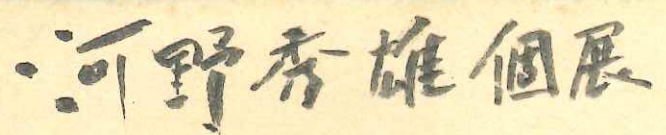 河野秀雄個展